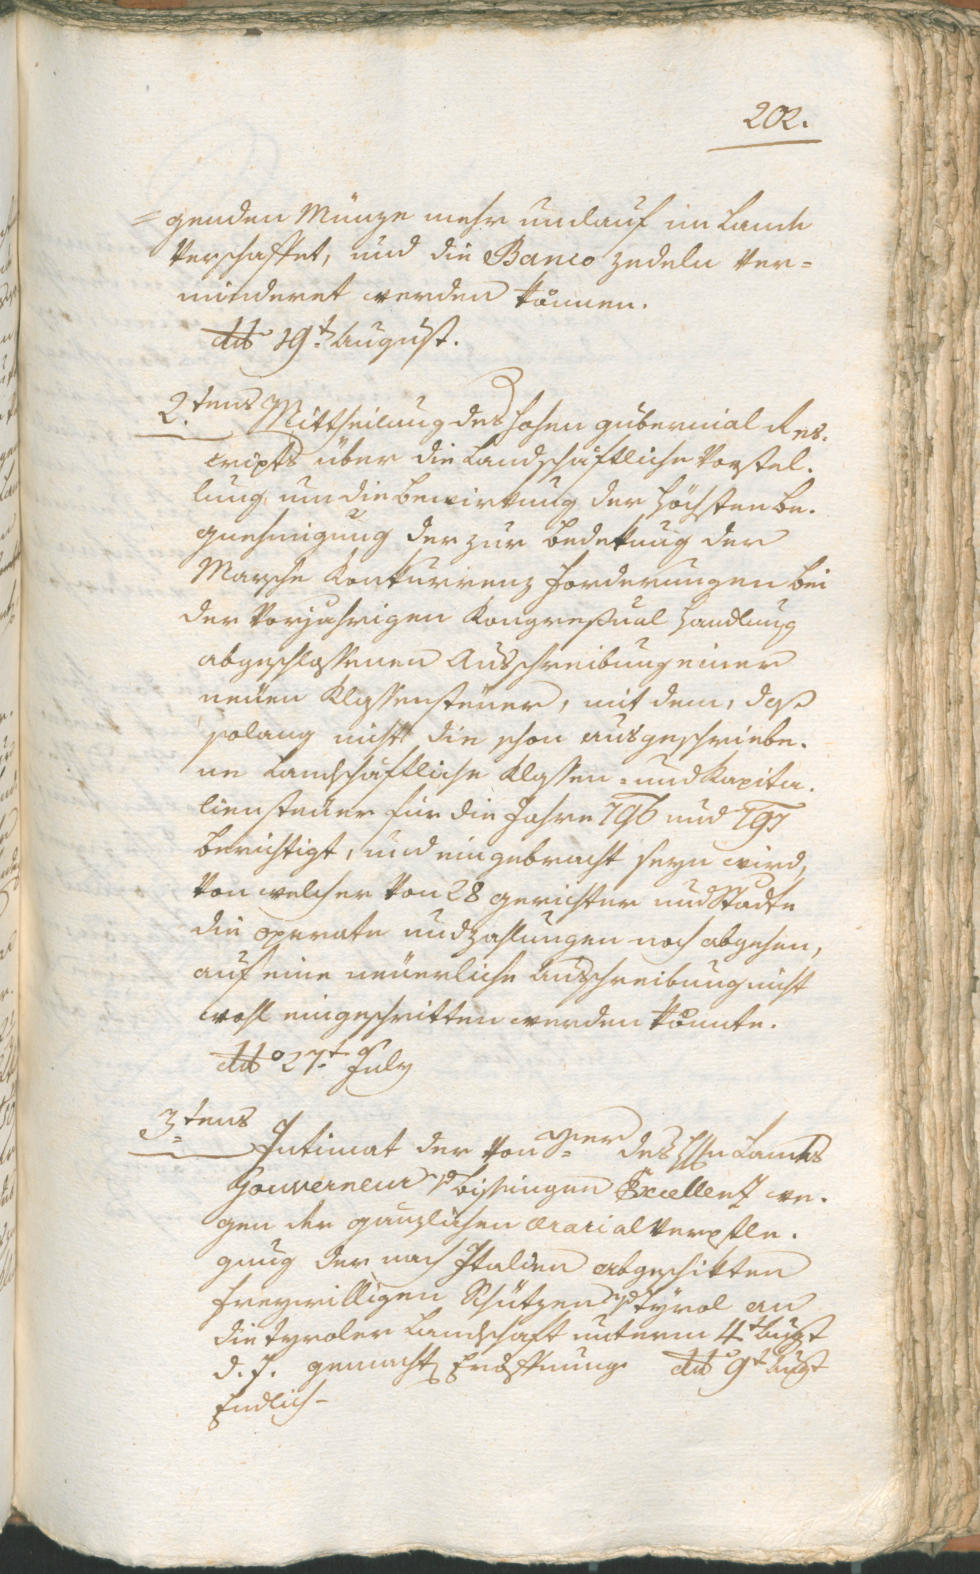 202.
=genden Münze mehr umlauf im Lande
verschaffet, und die Banco zedeln ver=
minderet werden können.
ddo 19t August.
2.tens Mittheilung des hohen gubernial Res.
cripts über die Landschäftliche Vorstel.
lung um die bewirkung der höchsten be.
gnehmigung der zur bedekung der
Marsche Konkurrenz forderungen bei
der vorjahrigen Kongreßual Handlung
abgeschlossenen Ausschreibung einer
neüen Klassensteüer, mit dem, daß
solang nicht die schon ausgeschriebe.
ne Landschäftliche Klassen- und Kapita.
liensteüer für die Jahre 796 und 797
berichtigt, und eingebracht seyn wird,
von welcher von 28 gerichter und Stadte
die operate und zahlungen noch abgehen,
auf eine neüerliche Ausschreibung nicht
wohl eingeschritten werden könnte.
ddo 27t July
3.tens Intimat der von Sr des H. Landes
Gouverneur v. bissingen Excellenz we.
gen der gänzlichen ærarial verpfle.
gung der nach Italien abgeschikten
freywilligen Schützen v. Tyrol an
die tyroler Landschaft unterm 4t Augst
d. J. gemacht Eröffnung ddo 9t Augst
Endlich-